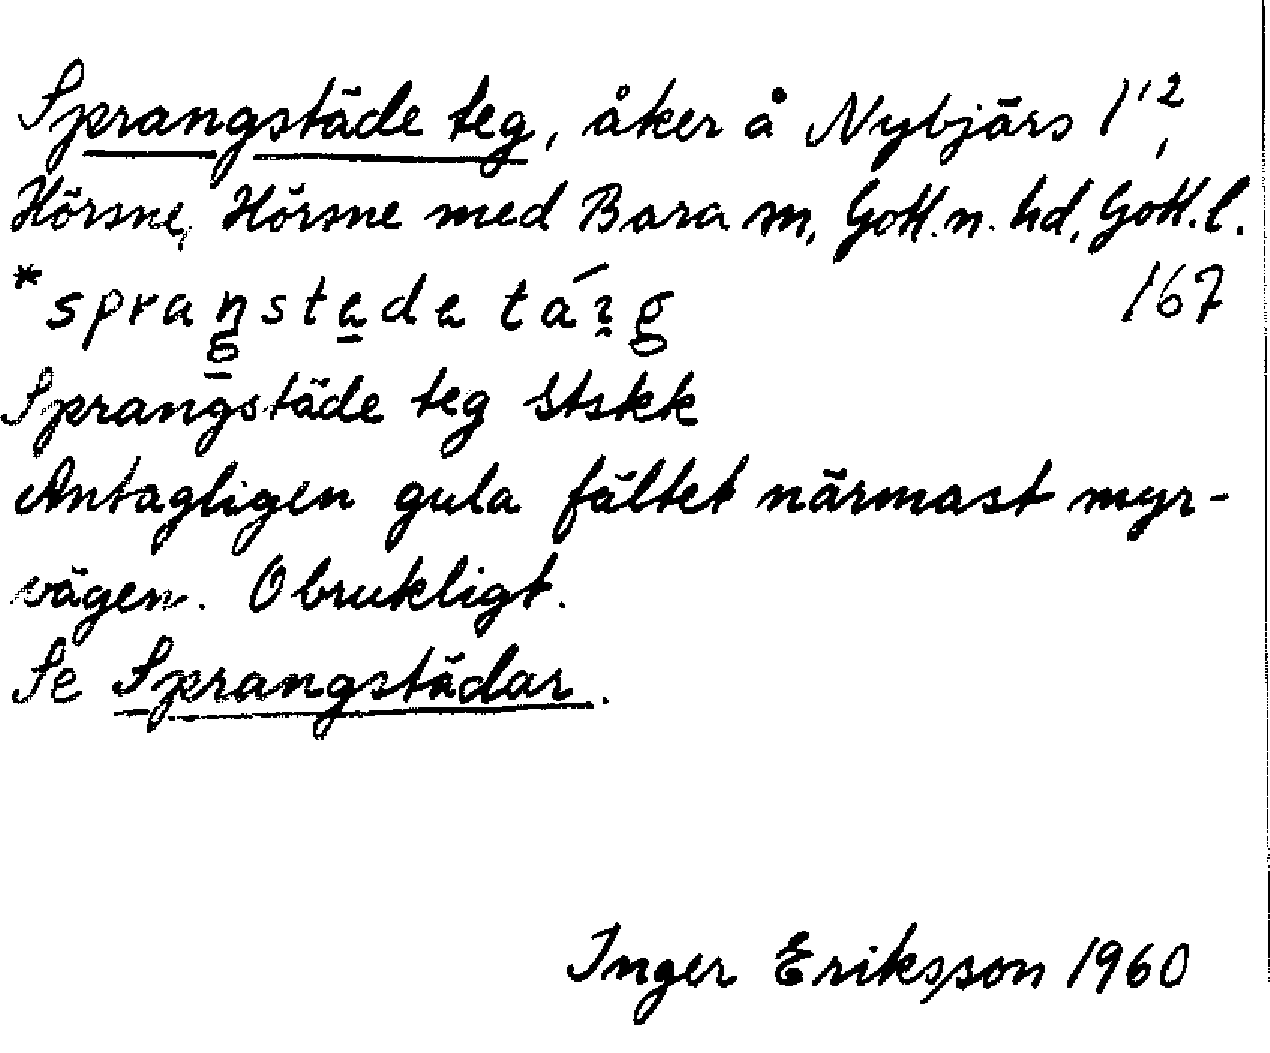 Sprangstäde teg, åker å Nybjärs 1²,
Hörsne, Hörsne med Bara sn, Gotl. n. hd, Gotl. l.
167
Sprangstäde teg Stskk
Antagligen gula fältet närmast myr-
vägen. Obrukligt.
Se Sprangstädar.
Inger Eriksson 1960